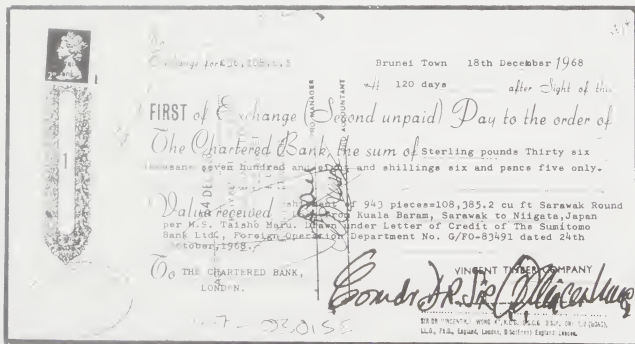 Exchange for
Brunei Town 18th December 1968
At 120 days after Sight of this
FIRST of Exchange (Second unpaid) Pay to the order of
The Chartered Bank, the sum of Sterling pounds Thirty six
thousand seven hundred and eight and shillings six and pence five only.
Value received shipment of 943 pieces=108,385.2 cu ft Sarawak Round
from Kuala Baram, Sarawak to Niigata, Japan
per M.S. Taisho Maru. Drawn under Letter of Credit of The Sumitomo
Bank Ltd., Foreign Operation Department No. G/FO-83491 dated 24th
October, 1968.
To THE CHARTERED BANK,
LONDON.
VINCENT TIMBER COMPANY
1
MANAGER
ACCOUNTANT